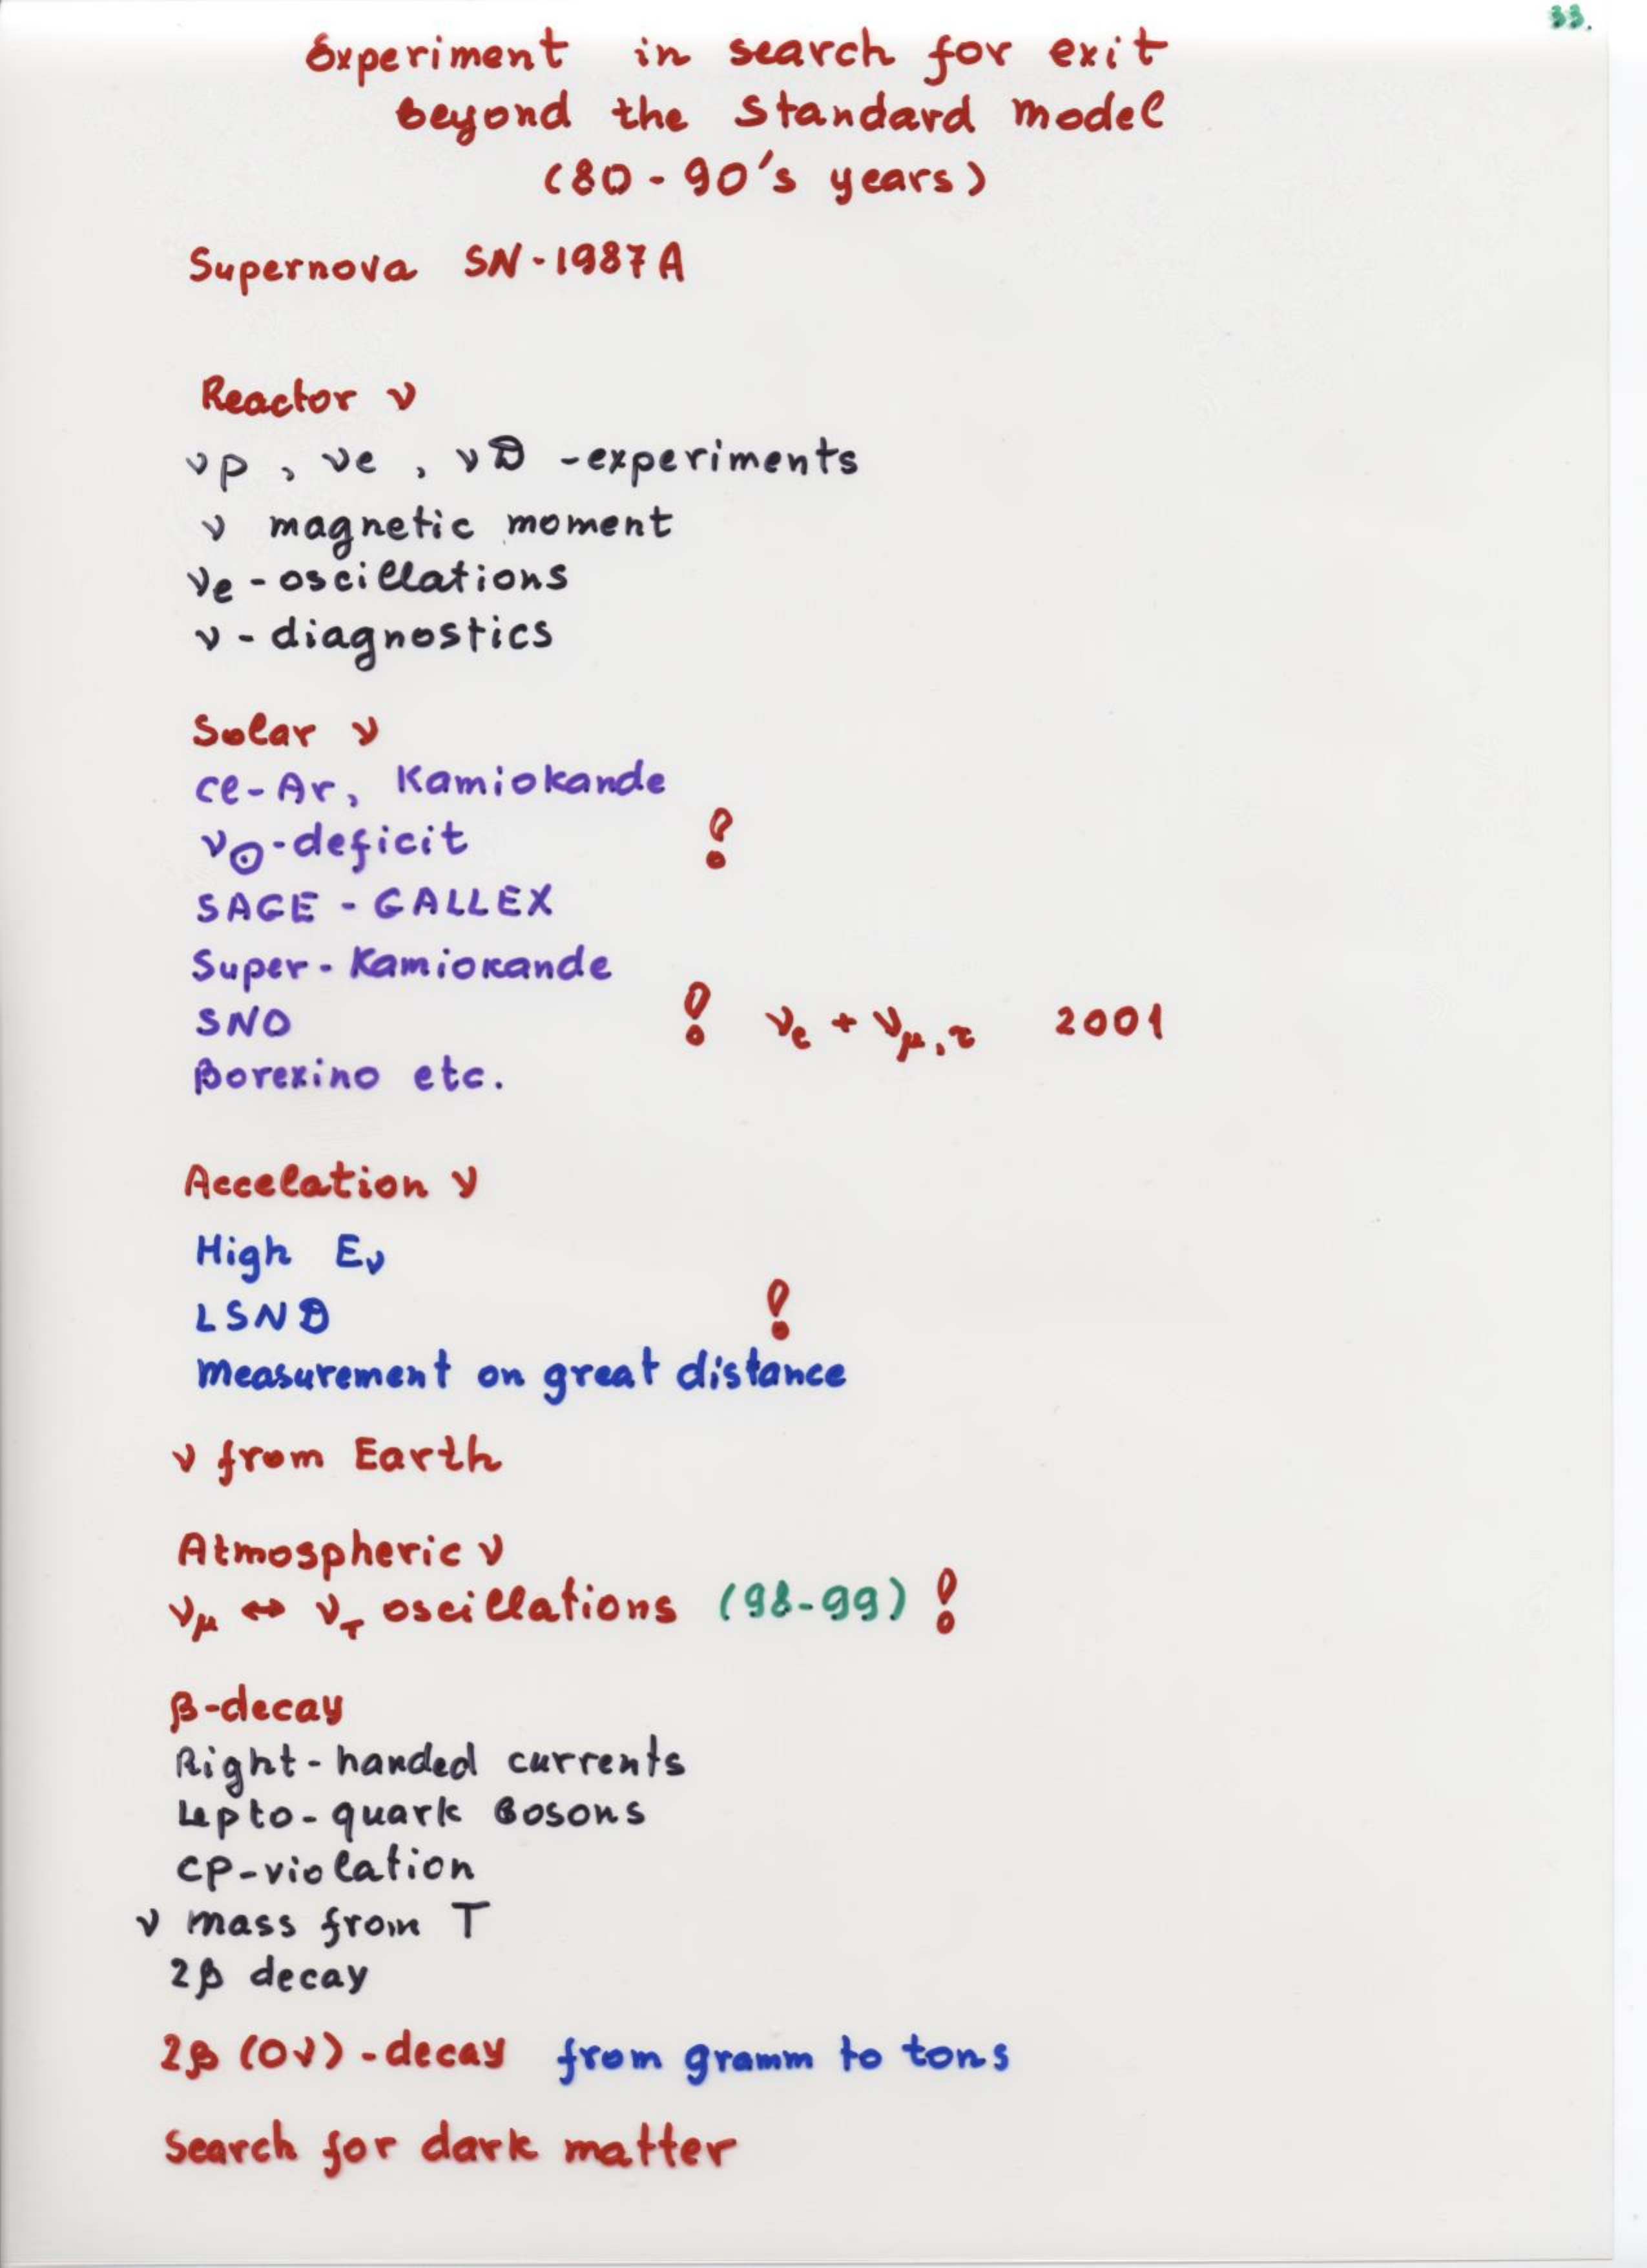 33.
Experiment in search for exit
beyond the Standard Model
(80-90's years)
Supernova SN-1987A
Reactor ν
νp, νe, νD -experiments
ν magnetic moment
νe - oscillations
ν - diagnostics
Solar ν
Cl-Ar, Kamiokande
ν⊙-deficit !
SAGE - GALLEX
Super-Kamiokande
SNO ! νe + νμ,τ 2001
Borexino etc.
Accelation ν
High Eν
LSND !
Measurement on great distance
ν from Earth
Atmospheric ν
νμ ↔ ντ oscillations (98-99) !
β-decay
Right-handed currents
Lepto-quark Bosons
CP-violation
ν mass from T
2β decay
2β (0ν) - decay from gramm to tons
Search for dark matter